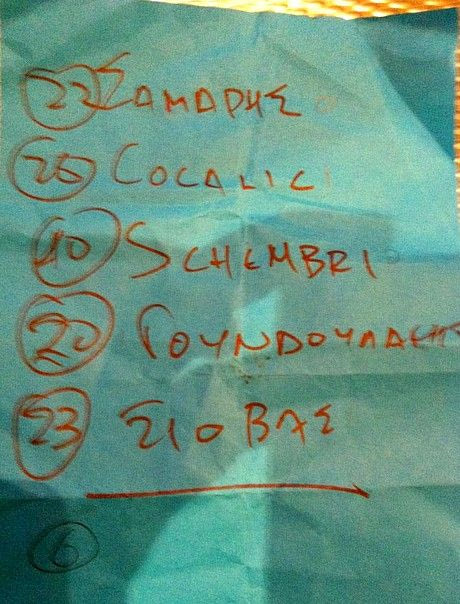 22 ΣΑΜΑΡΗΣ
25 COCALIC
40 SCHEMBRI
20 ΓΟΥΝΔΟΥΛΑΚΗΣ
23 ΣΙΟΒΑΣ
6